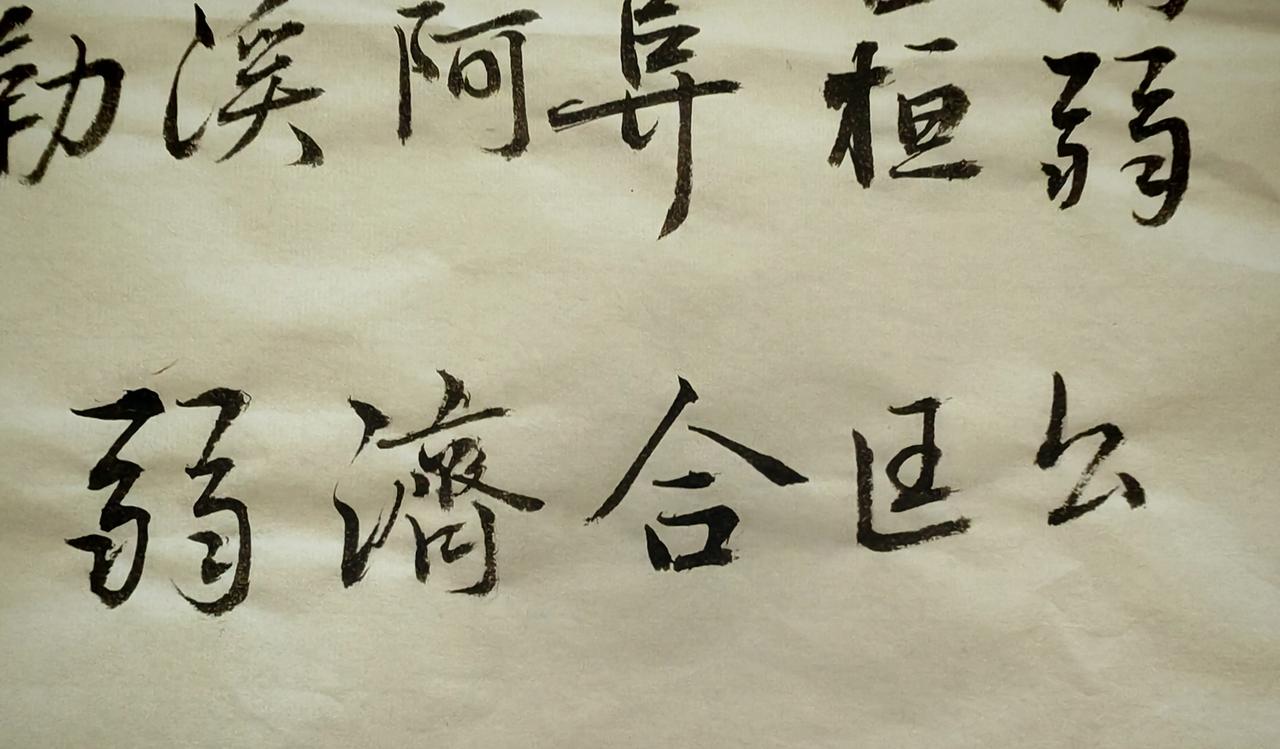 勒溪阿阜桓弱
公匡合濟弱